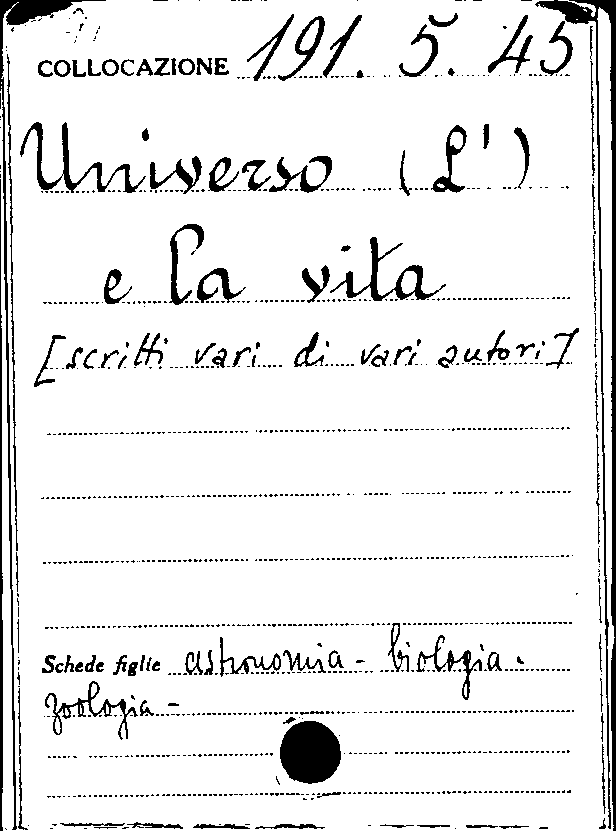 COLLOCAZIONE 191. 5. 45
Universo (L')
e la vita
[scritti vari di vari autori]
Schede figlie astronomia - biologia.
zoologia -